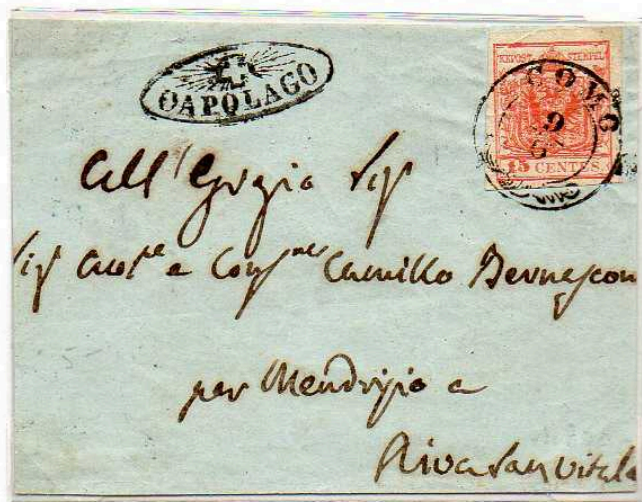 CAPOLAGO
KKPOST STEMPEL
COMO
9
15 CENTES
All' Egregio Sigr
Sigr Avvte e Consre Camillo Bernascon
per Mendrisio a
Riva San Vitale